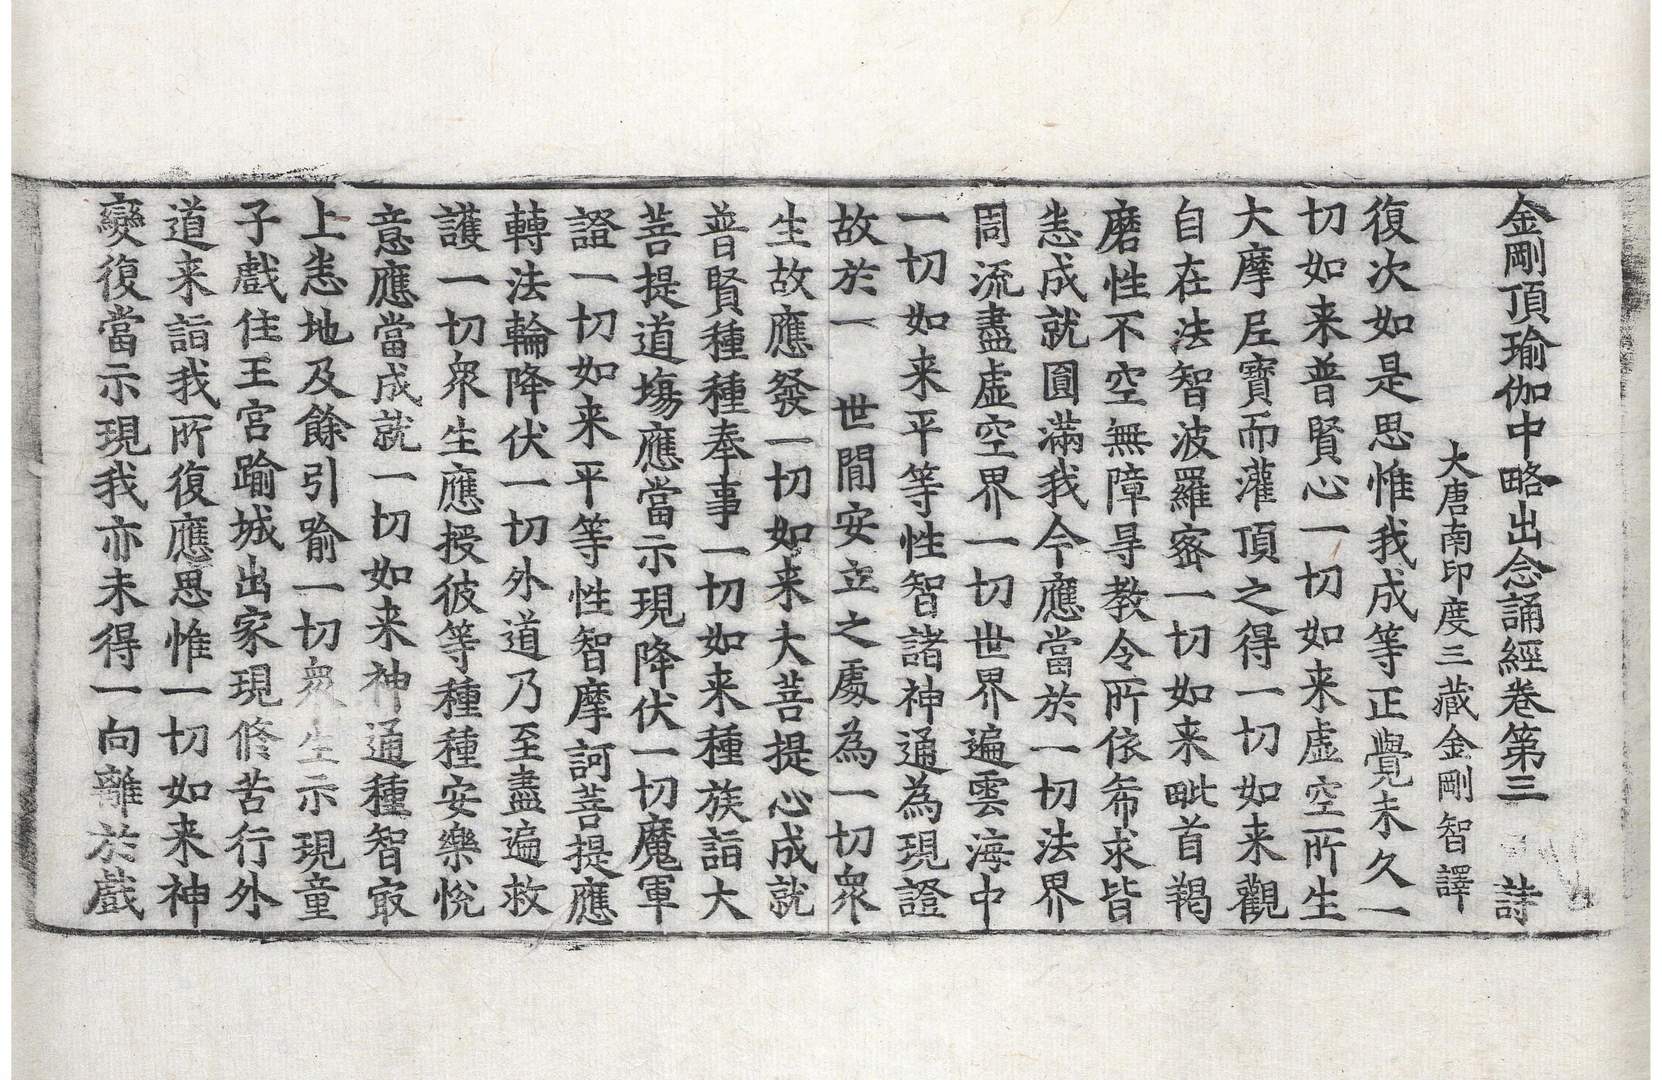 金剛頂瑜伽中略出念誦經卷第三 詩
大唐南印度三藏金剛智譯
復次如是思惟我成等正覺未久一
切如来普賢心一切如来虛空所生
大摩尼寶而灌頂之得一切如来觀
自在法智波羅蜜一切如来毗首羯
磨性不空無障㝵教令所依希求皆
悉成就圓滿我今應當於一切法界
周流盡虛空界一切世界遍雲海中
一切如来平等性智諸神通為現證
故於一 世間安立之處為一切衆
生故應發一切如来大菩提心成就
普賢種種奉事一切如来種族詣大
菩提道場應當示現降伏一切魔軍
證一切如来平等性智摩訶菩提應
轉法輪降伏一切外道乃至盡遍救
護一切衆生應授彼等種種安樂悅
意應當成就一切如来神通種智㝡
上悉地及餘引喻一切衆生示現童
子戲住王宮踰城出家現修苦行外
道来詣我所復應思惟一切如来神
變復當示現我亦未得一向離於戲